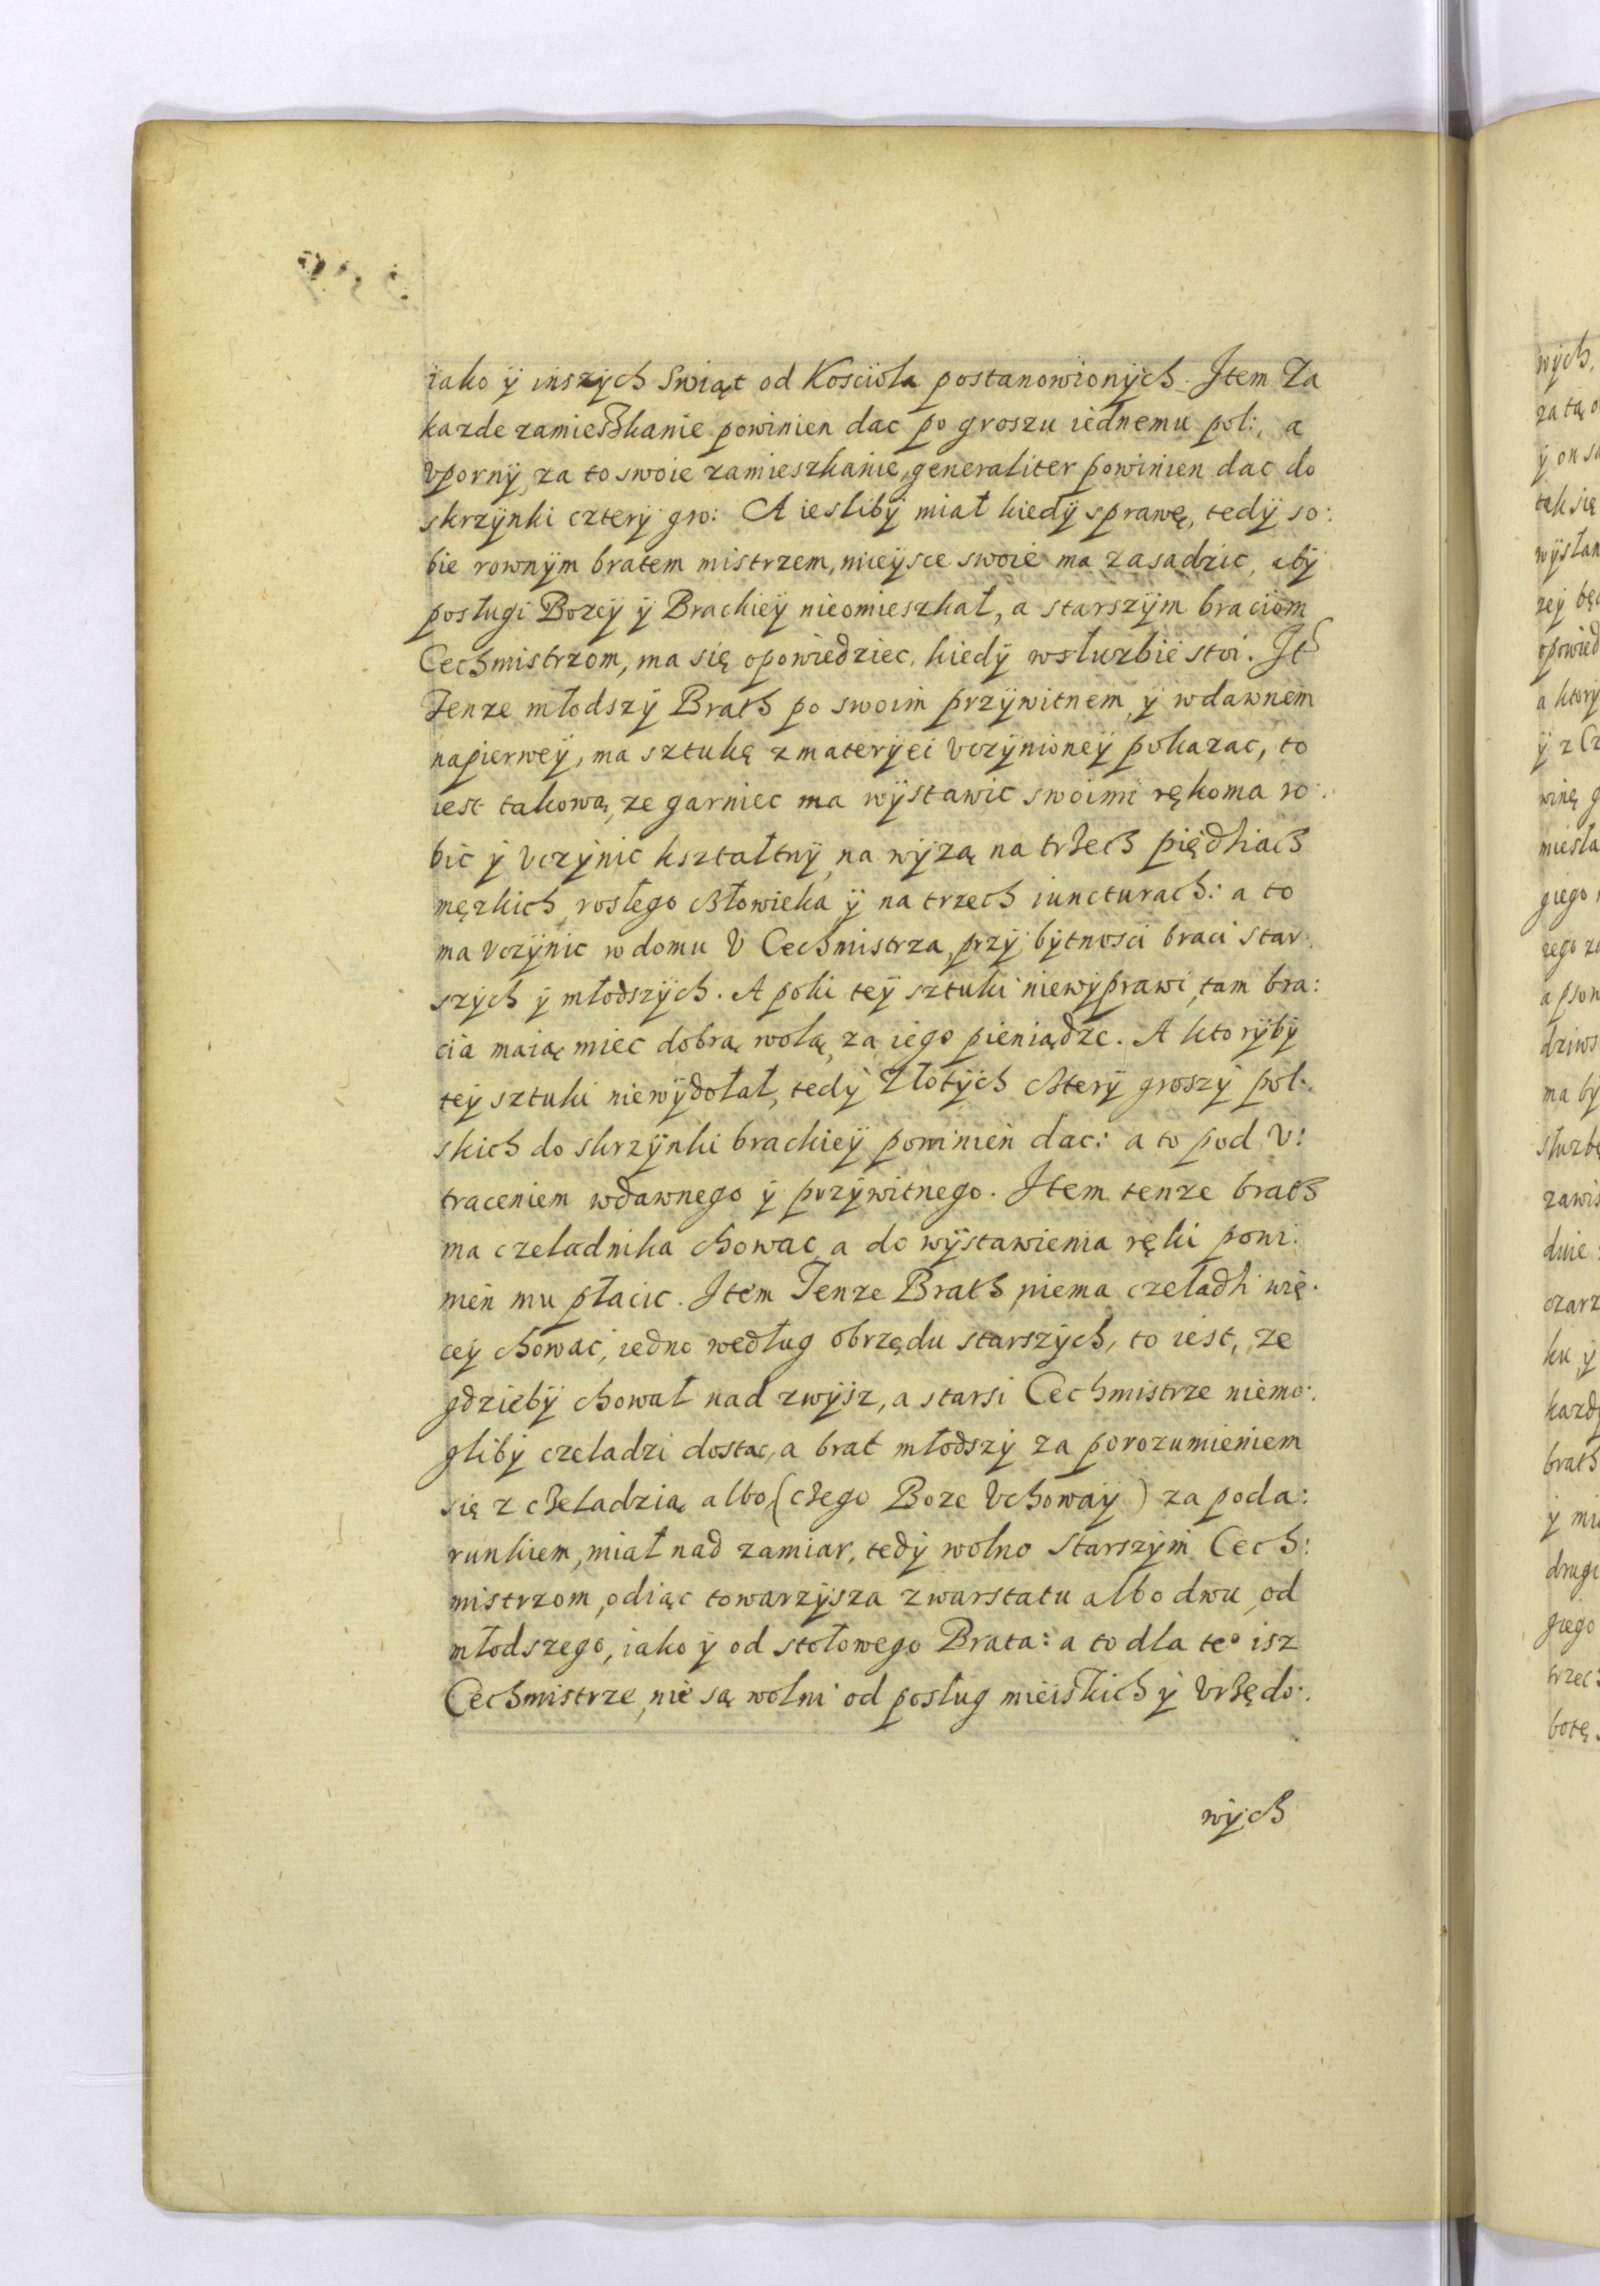 iako ÿ inszÿch Swiąt od Kosciola postanowionÿch. Jtem Za
kazde zamieszkanie powinien dac po groszu iednemu pol:, a
vpornÿ, za to swoie zamieszkanie, generaliter powinien dac do
skrzÿnki czterÿ gro: A iesliby miał kiedÿ sprawę, tedÿ so:
bie rownÿm bratem mistrzem, mieÿsce swoie ma zasadzic, abÿ
posługi Bozeÿ ÿ Brackieÿ nieomieszkał, a starszÿm braciom
Cechmistrzom, ma się opowiedziec, kiedÿ wsłuzbie stoi. Jt
Tenze młodszÿ Brath po swoim przÿwitnem, ÿ wdawnem
napierweÿ, ma sztukę z materÿei vczÿnioneÿ pokazac, to
iest takową, ze garniec ma wÿstawic swoimi rękoma ro:
bic ÿ vczÿnic kształtnÿ, na wÿzą na trzech piędziach
męzkich, rosłego człowieka ÿ na trzech iuncturach: a to
ma vczÿnic w domu V Cechmistrza, przÿ bÿtnosci braci star:
szÿch ÿ młodszÿch. A poki teÿ sztuki niewÿprawi, tam bra:
cia maią miec dobrą wolą, za iego pieniądze. A ktorÿbÿ
teÿ sztuki niewÿdołał, tedÿ Złotÿch czterÿ groszÿ pol:
skich do skrzÿnki brackieÿ powinien dac: a to pod V:
traceniem wdawnego ÿ przÿwitnego. Jtem tenze brath
ma czeladnika chowac, a do wÿstawienia ręki powi:
nien mu płacic. Jtem Tenze Brath niema czeladzi wię:
ceÿ chowac, iedno według obrzędu starszÿch, to iest, ze
gdziebÿ chował nad zwÿsz, a starsi Cechmistrze niemo:
glibÿ czeladzi dostac, a brat młodszÿ za porozumieniem
się z czeladzią albo (czego Boze Vchowaÿ) za poda:
runkiem, miał nad zamiar, tedÿ wolno Starszÿm Cech:
mistrzom, odiąc towarzÿsza z warstatu albo dwu, od
młodszego, iako ÿ od stołowego Brata: a to dla te° isz
Cechmistrze, nie są wolni od posług mieiskich ÿ Vrzędo:
wÿch